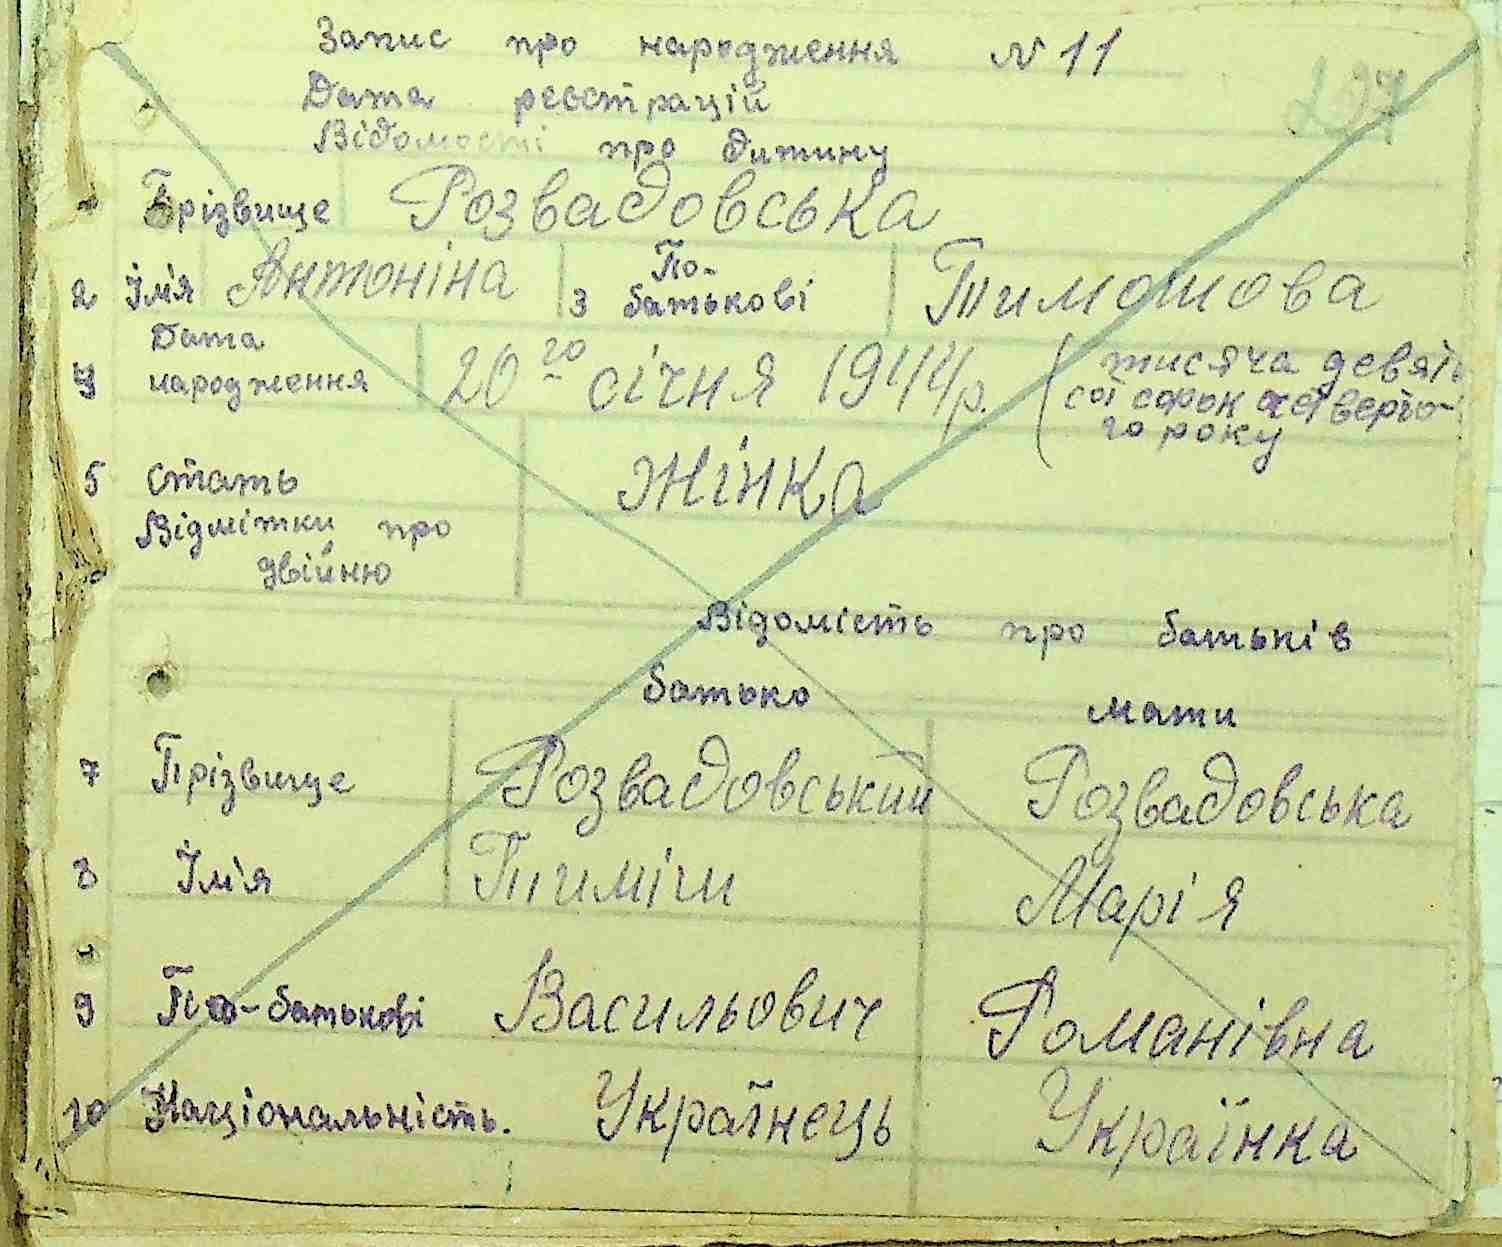 Запис про народження N 11
207
Дата реєстрацій
Відомості про дитину
Прізвище Розвадовська
2 Імʼя Антоніна 3 По-батькові Тимошова
4 Дата народження 20го січня 1944р. (тисяча девять
сот сорок четверто-
го року
5 Стать жінка
Відмітки про
двійню
Відомість про батьків
батько мати
7 Прізвище Розвадовський Розвадовська
8 Імʼя Тиміш Марія
9 По-батькові Васильович Романівна
10 Національність. Українець Українка